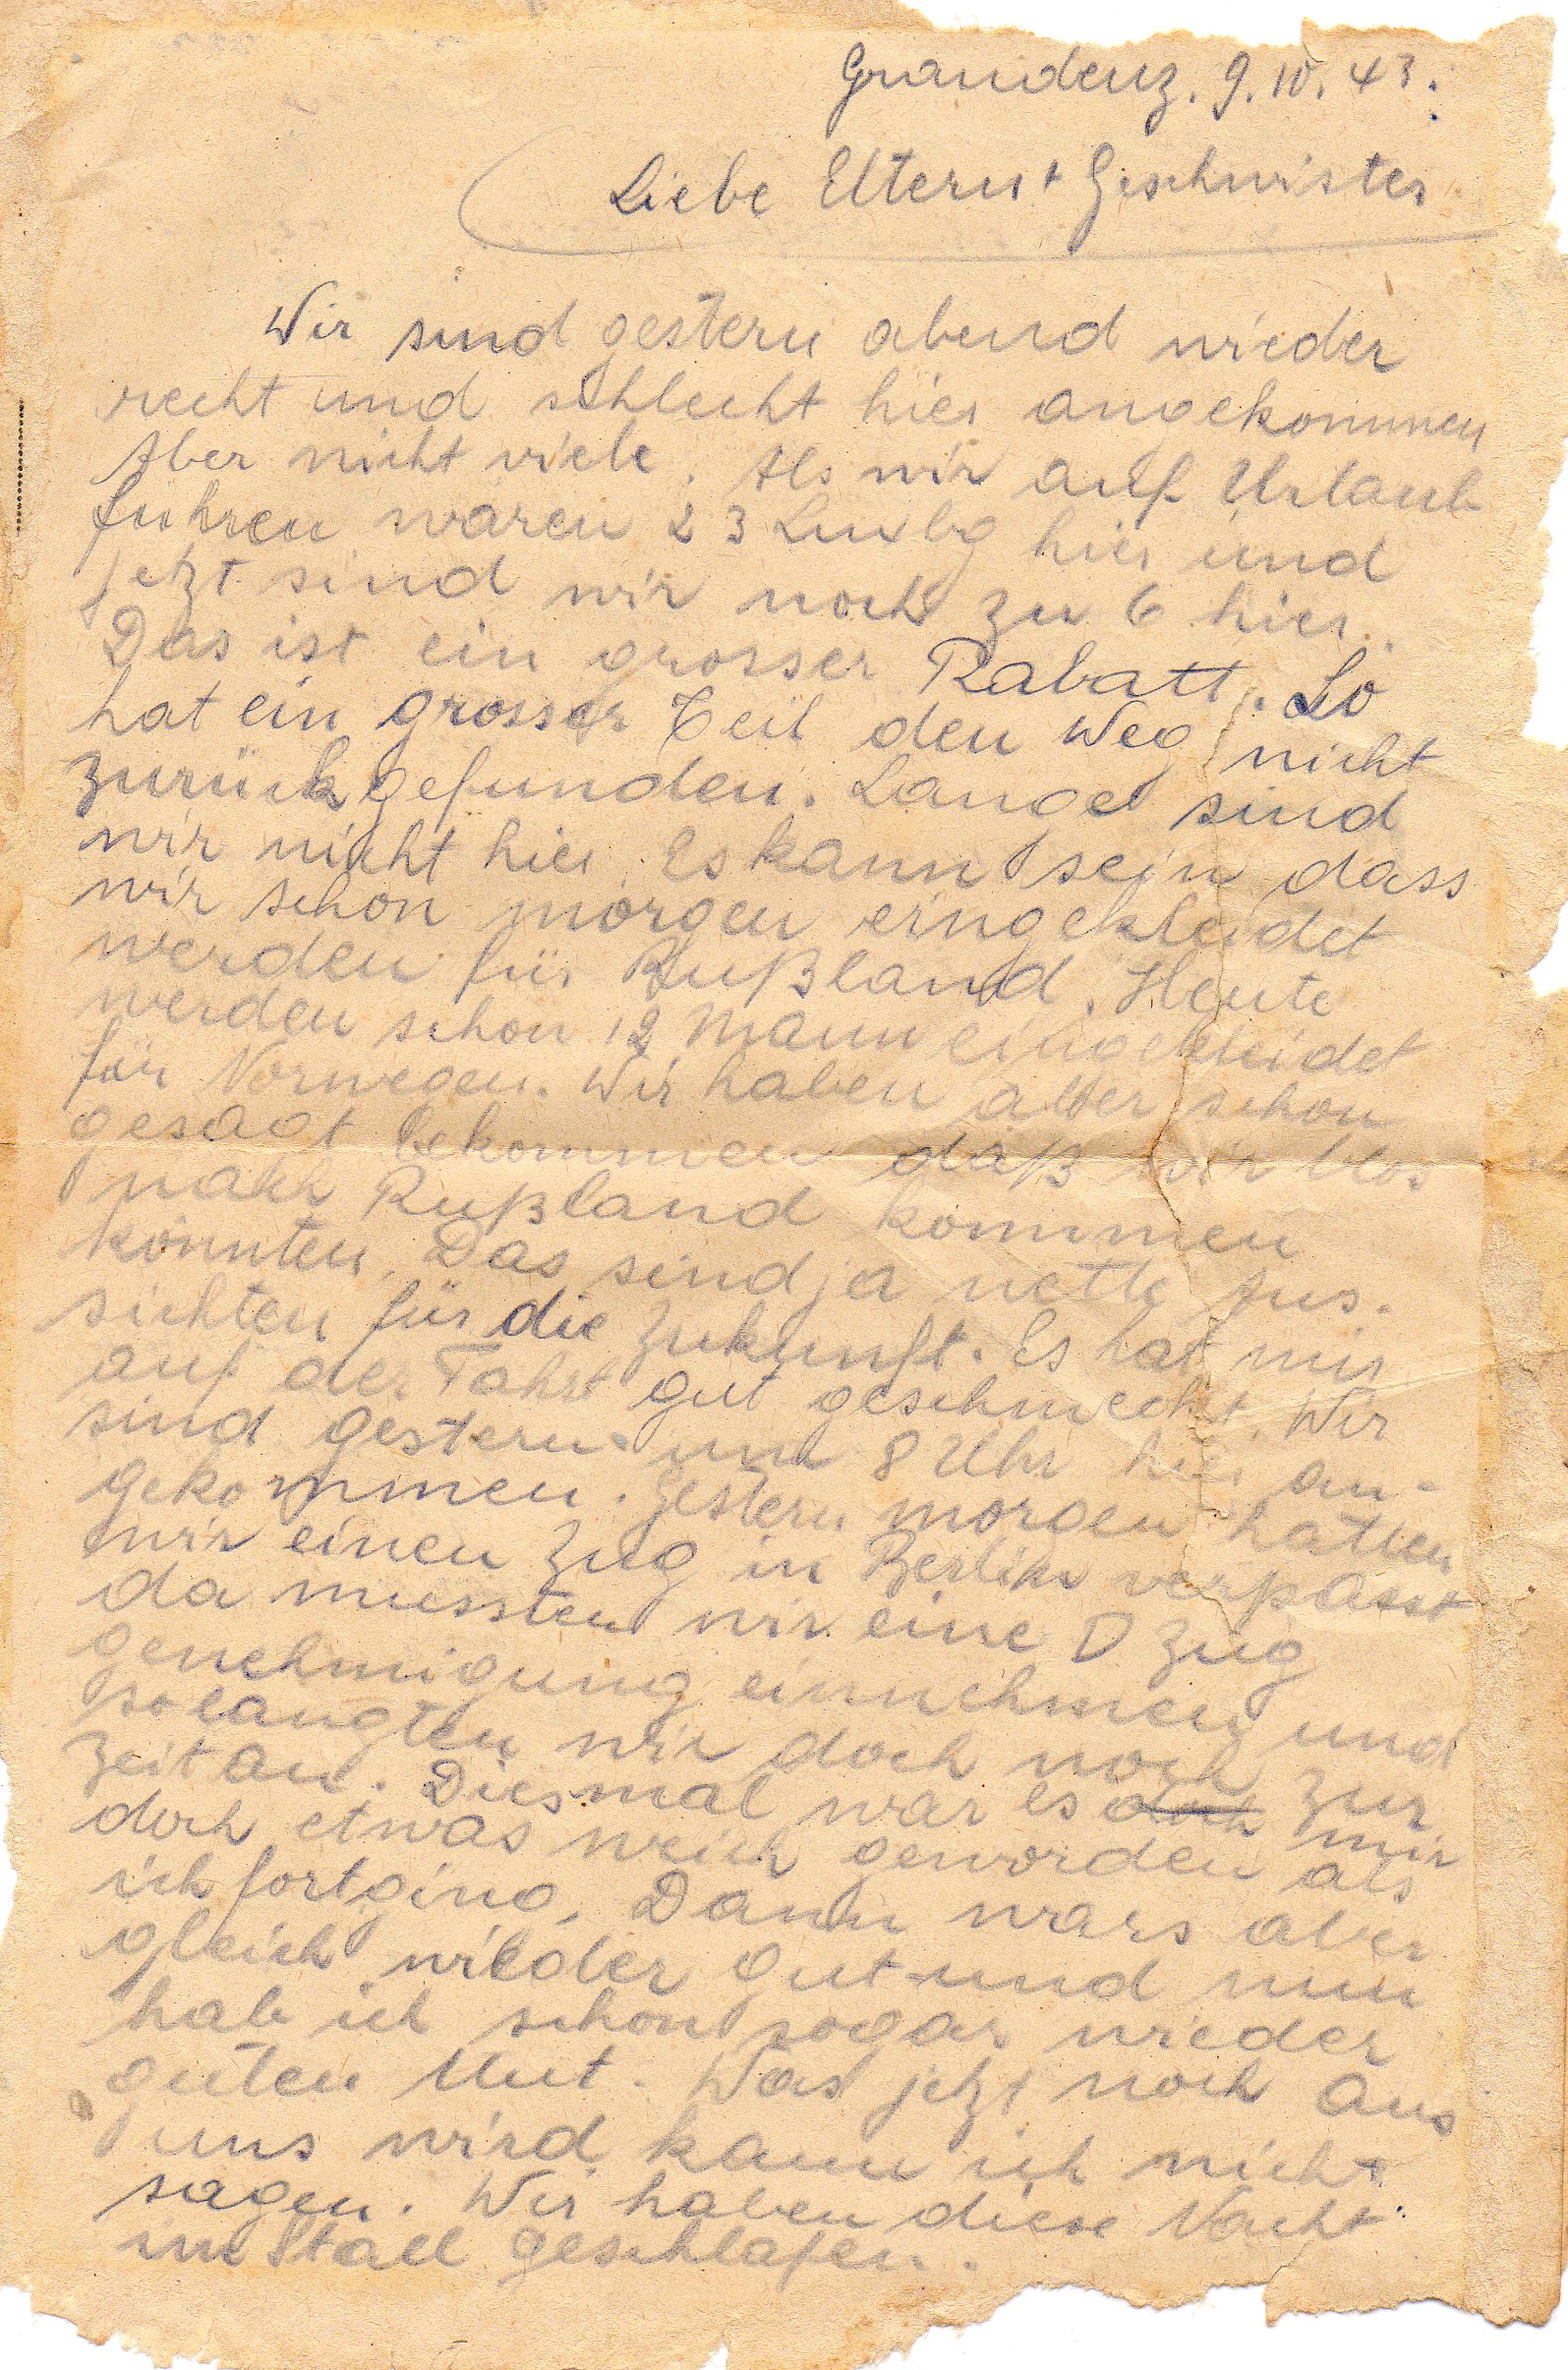 Graudenz. 9.10.43.
Liebe Eltern + Geschwister
Wir sind gestern abend wieder
recht und schlecht hier angekommen
Aber nicht viele. Als wir auf Urlaub
fuhren waren 23 Luxbg hier und
jetzt sind wir noch zu 6 hier.
Das ist ein grosser Rabatt. So
hat ein grosser Teil den Weg nicht
zurück gefunden. Lange sind
wir nicht hier. Es kann sein dass
wir schon morgen eingekleidet
werden für Rußland. Heute
werden schon 12 Mann eingekleidet
für Norwegen. Wir haben aber schon
gesagt bekommen daß wir blos
nach Rußland kommen
könnten. Das sind ja nette Aus-
sichten für die Zukunft. Es hat mir
auf der Fahrt gut geschmeckt. Wir
sind gestern um 8 Uhr hier an-
gekommen. Gestern morgen hatten
wir einen Zug in Berlin verpasst
da mussten wir eine D Zug
genehmigung einnehmen und
so langten wir doch noch zur
Zeit an. Diesmal war es doch mir
doch etwas weich geworden als
ich fortging. Dann wars aber
gleich wieder gut und nun
hab ich schon sogar wieder
guten Mut. Was jetzt noch aus
uns wird kann ich nicht
sagen. Wir haben diese Nacht
im Stall geschlafen.